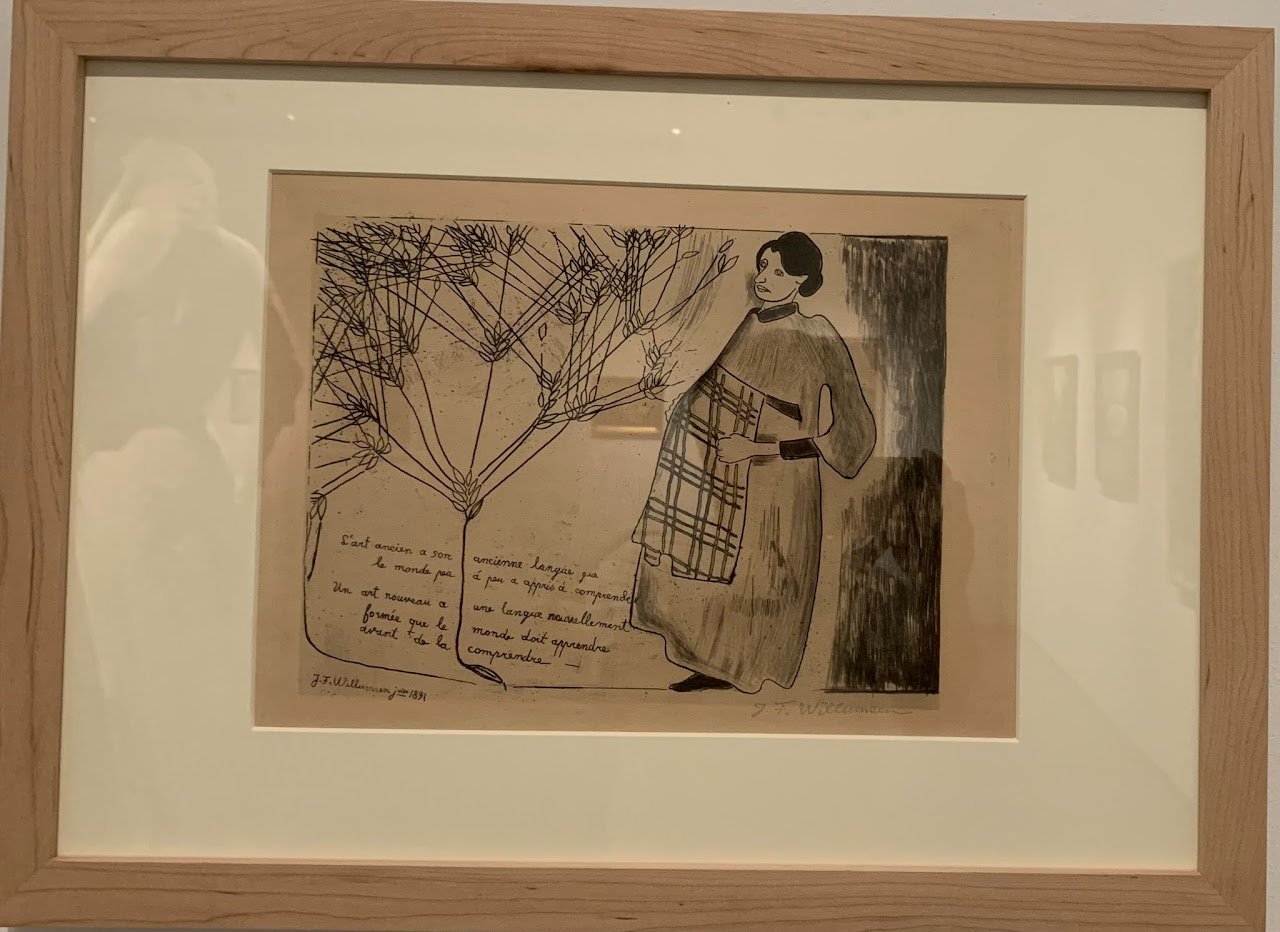 L'art ancien a son ancienne langue que
le monde peu á peu a appris à comprende
Un art nouveau a une langue nouvellement
formée que le monde doit apprendre
avant de la comprendre —
J.F. Willumsen 1891
J. F. Willumsen